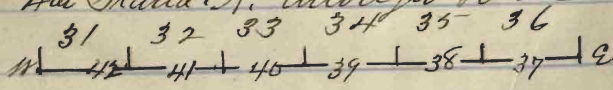 31 32 33 34 35 36
W 42 41 40 39 38 37 E